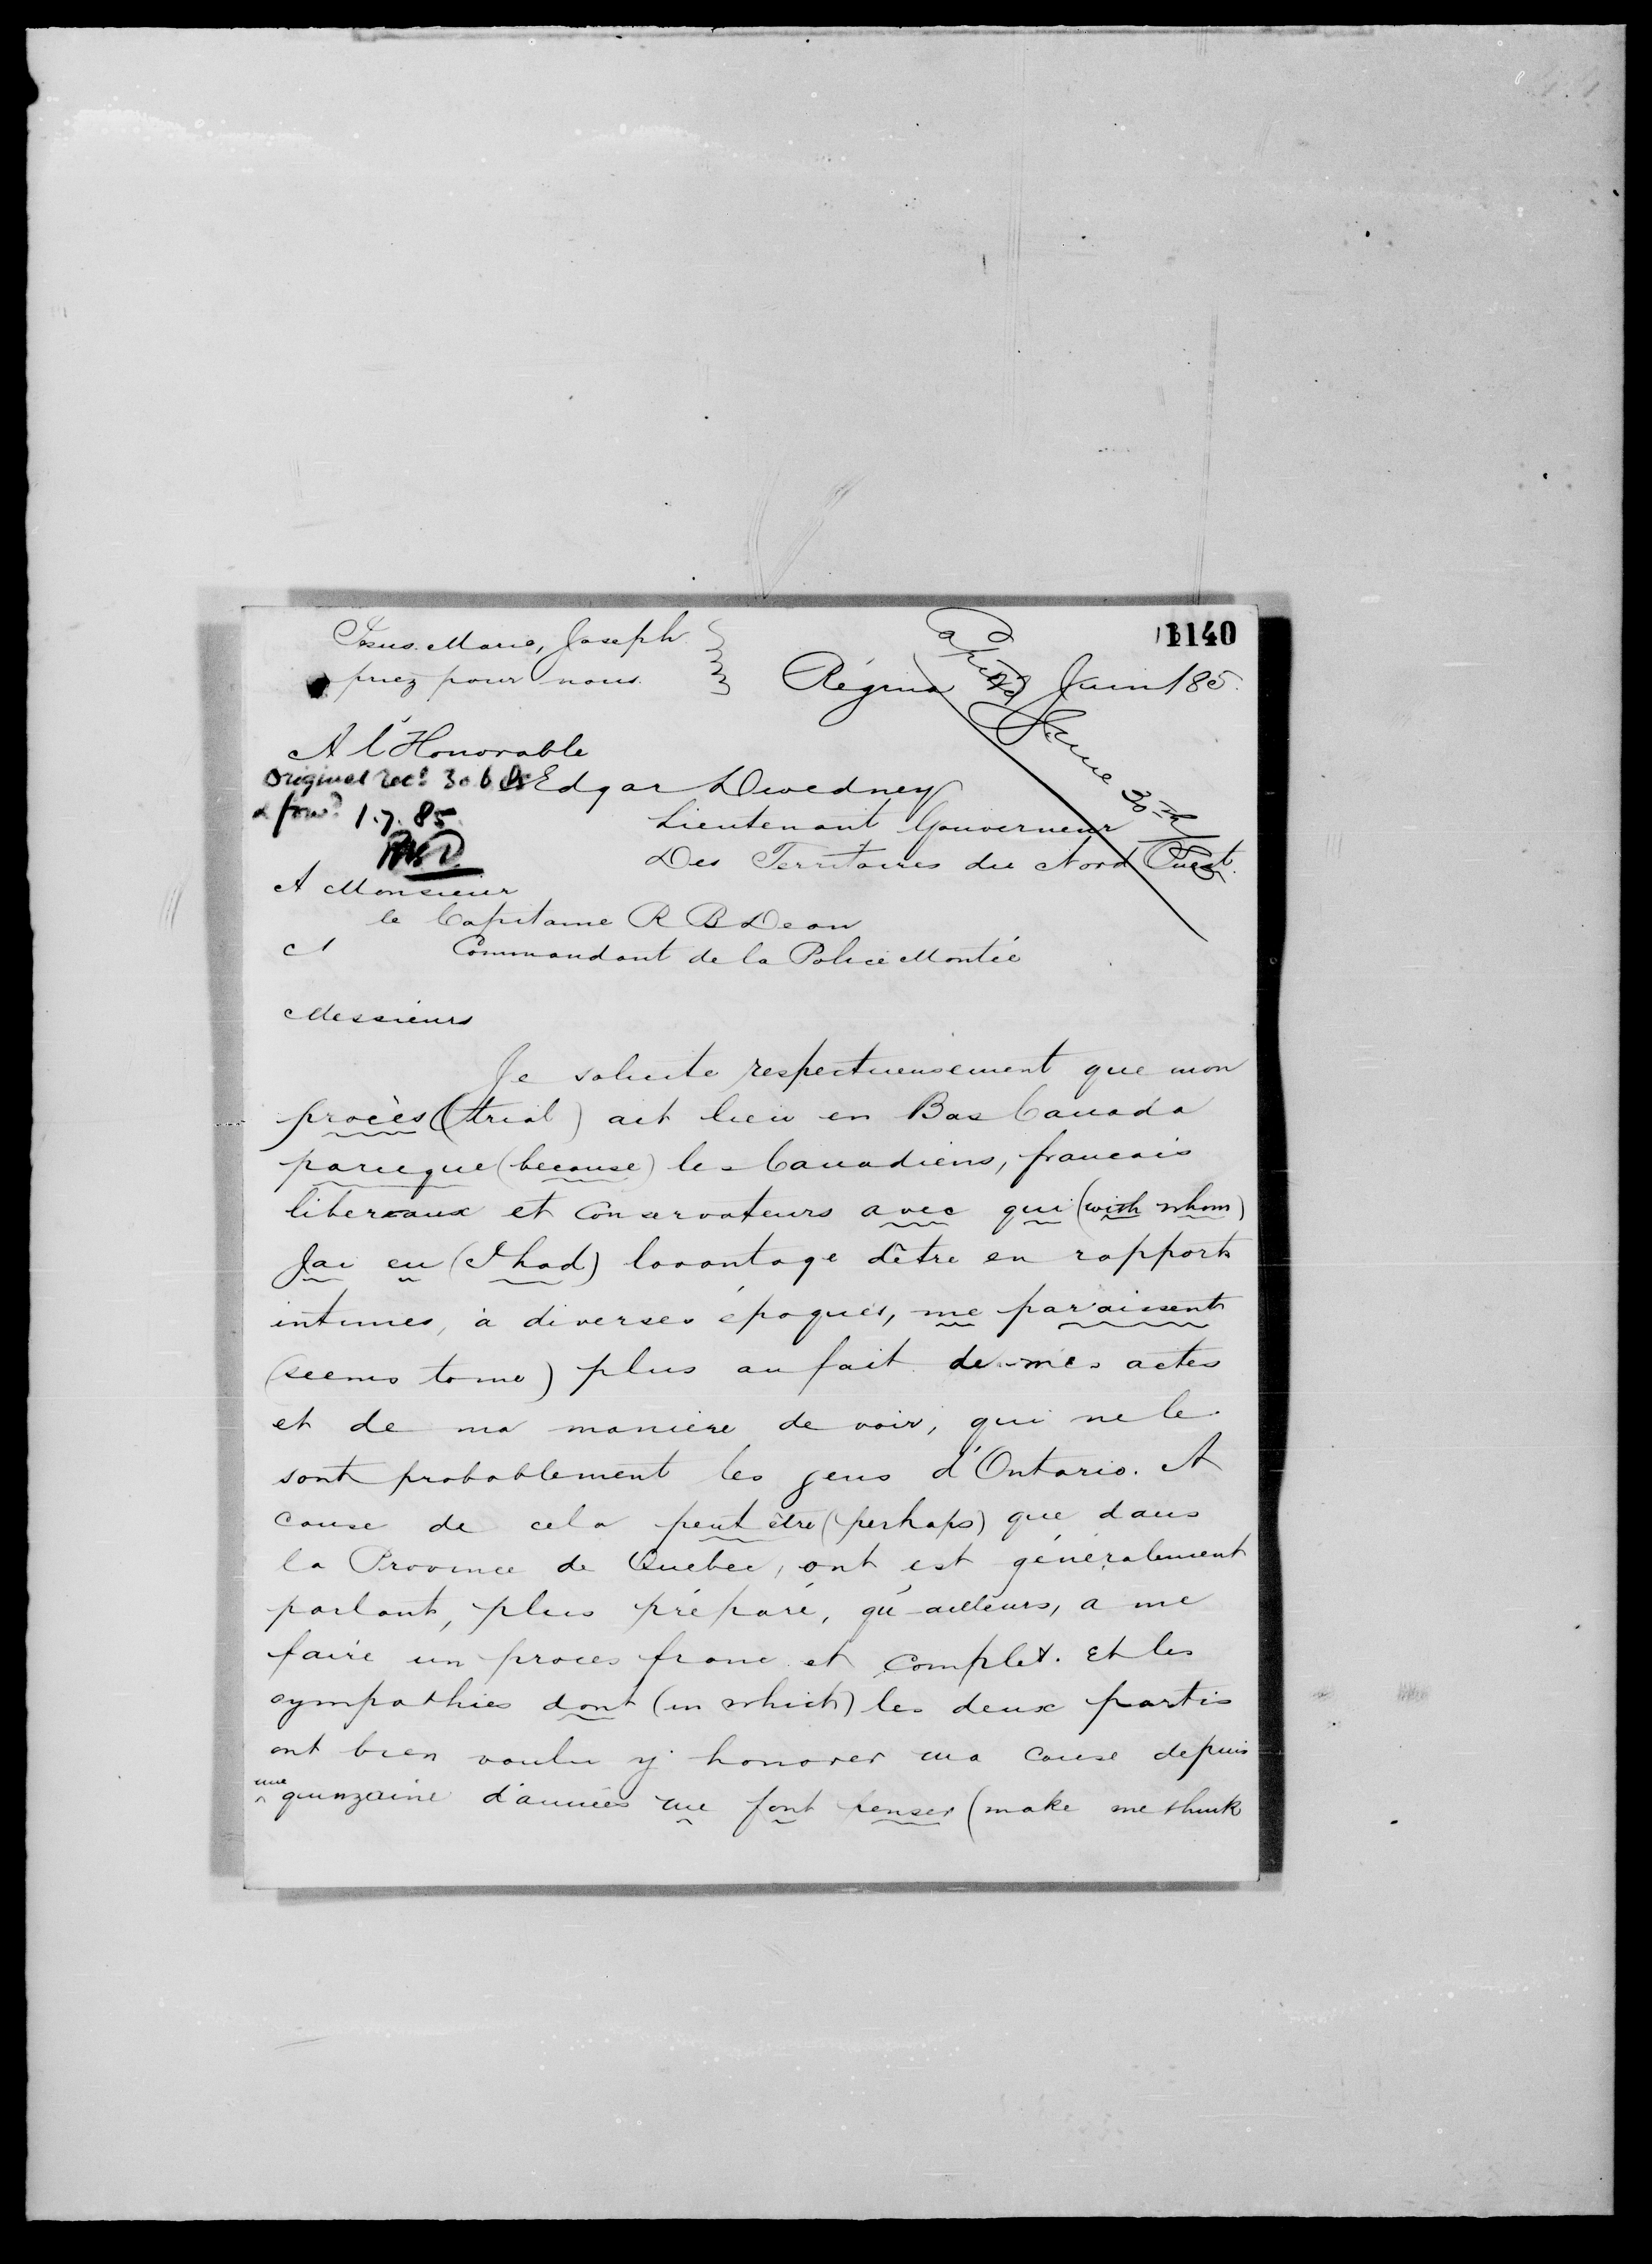 1140
Jesus. Marie, Joseph
priez pour nous.
Régina Juin 185.
June 30th
A l'Honorable
Original rec'd 30 6 85
Edgar Dwedney
& forw'd 1.7.85
RBD
Lieutenant Gouverneur
Des Territoires du Nord Ouest.
A Monsieur
le Capitaine R B Dean
A Commandant de la Police Montée
Messieurs
Je solicite respectueusement que mon
procès (trial) ait lieu en Bas Canada
parceque (because) les Canadiens, francais
libereaux et Conservateurs avec qui (with whom)
Jai eu (I had) lavantage d'être en rapports
intimes, à diverses époques, me paraissent
(seems to me) plus au fait de mes actes
et de ma maniere de voir, qui ne le
sont probablement les gens d'Ontario. A
cause de cela peut être (perhaps) que dans
la Province de Quebec, ont est généralement
parlant, plus préparé, qu'ailleurs, a me
faire un proces franc et complet. Et les
sympathies dont (in which) les deux partis
ont bien voulu y honorer ma cause depuis
une quinzaine d'années me font penser (make me think